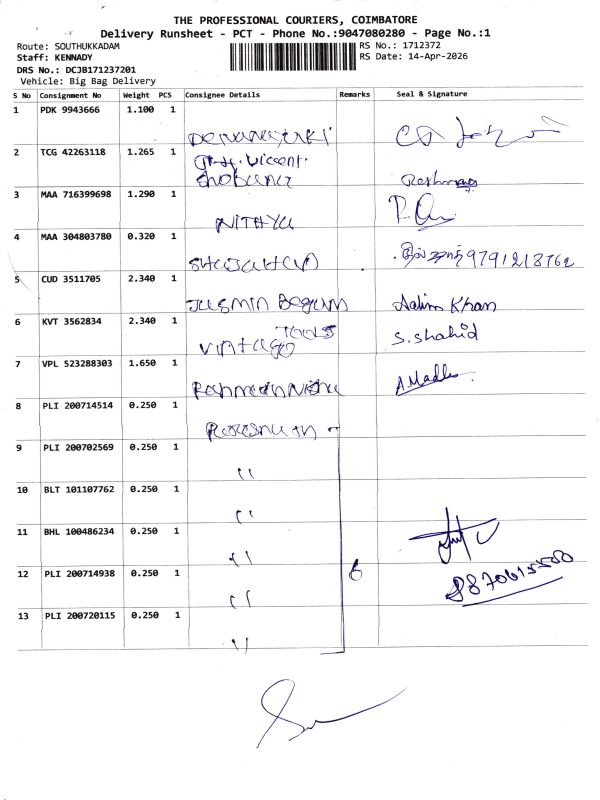 THE PROFESSIONAL COURIERS, COIMBATORE
Delivery Runsheet - PCT - Phone No.:9047080280 - Page No.:1
Route: SOUTHUKKADAM
RS No.: 1712372
Staff: KENNADY
RS Date: 14-Apr-2026
DRS No.: DCJB171237201
Vehicle: Big Bag Delivery
S No Consignment No Weight PCS Consignee Details Remarks Seal & Signature
1 PDK 9943666 1.100 1
2 TCG 42263118 1.265 1 Shobana Reshma
3 MAA 716399698 1.290 1 NITHYA
4 MAA 304803780 0.320 1 9791218762
5 CUD 3511705 2.340 1 Jasmin Begum Aalim Khan
6 KVT 3562834 2.340 1 Vintage Tools S. Shahid
7 VPL 523288303 1.650 1 A. Madhu
8 PLI 200714514 0.250 1
9 PLI 200702569 0.250 1 ''
10 BLT 101107762 0.250 1 ''
11 BHL 100486234 0.250 1 ''
12 PLI 200714938 0.250 1 '' 6
13 PLI 200720115 0.250 1 ''